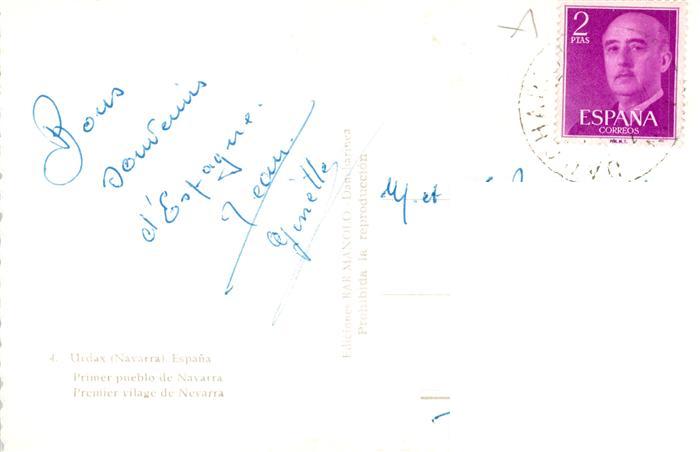 Bons
souvenirs
d'Espagne.
Jean
Ginette
M. et
2
PTAS
ESPAÑA
CORREOS
Ediciones BAR MANOLO. Dancharinea
Prohibida la reproducción
4. Urdax (Navarra). España
Primer pueblo de Navarra
Premier vilage de Nevarra